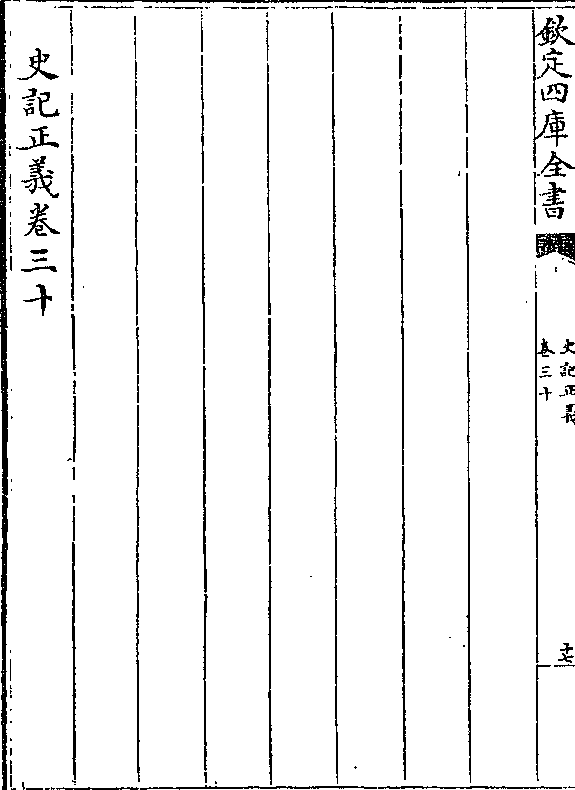 欽定四庫全書
史記正義
卷三十
十七
史記正義卷三十